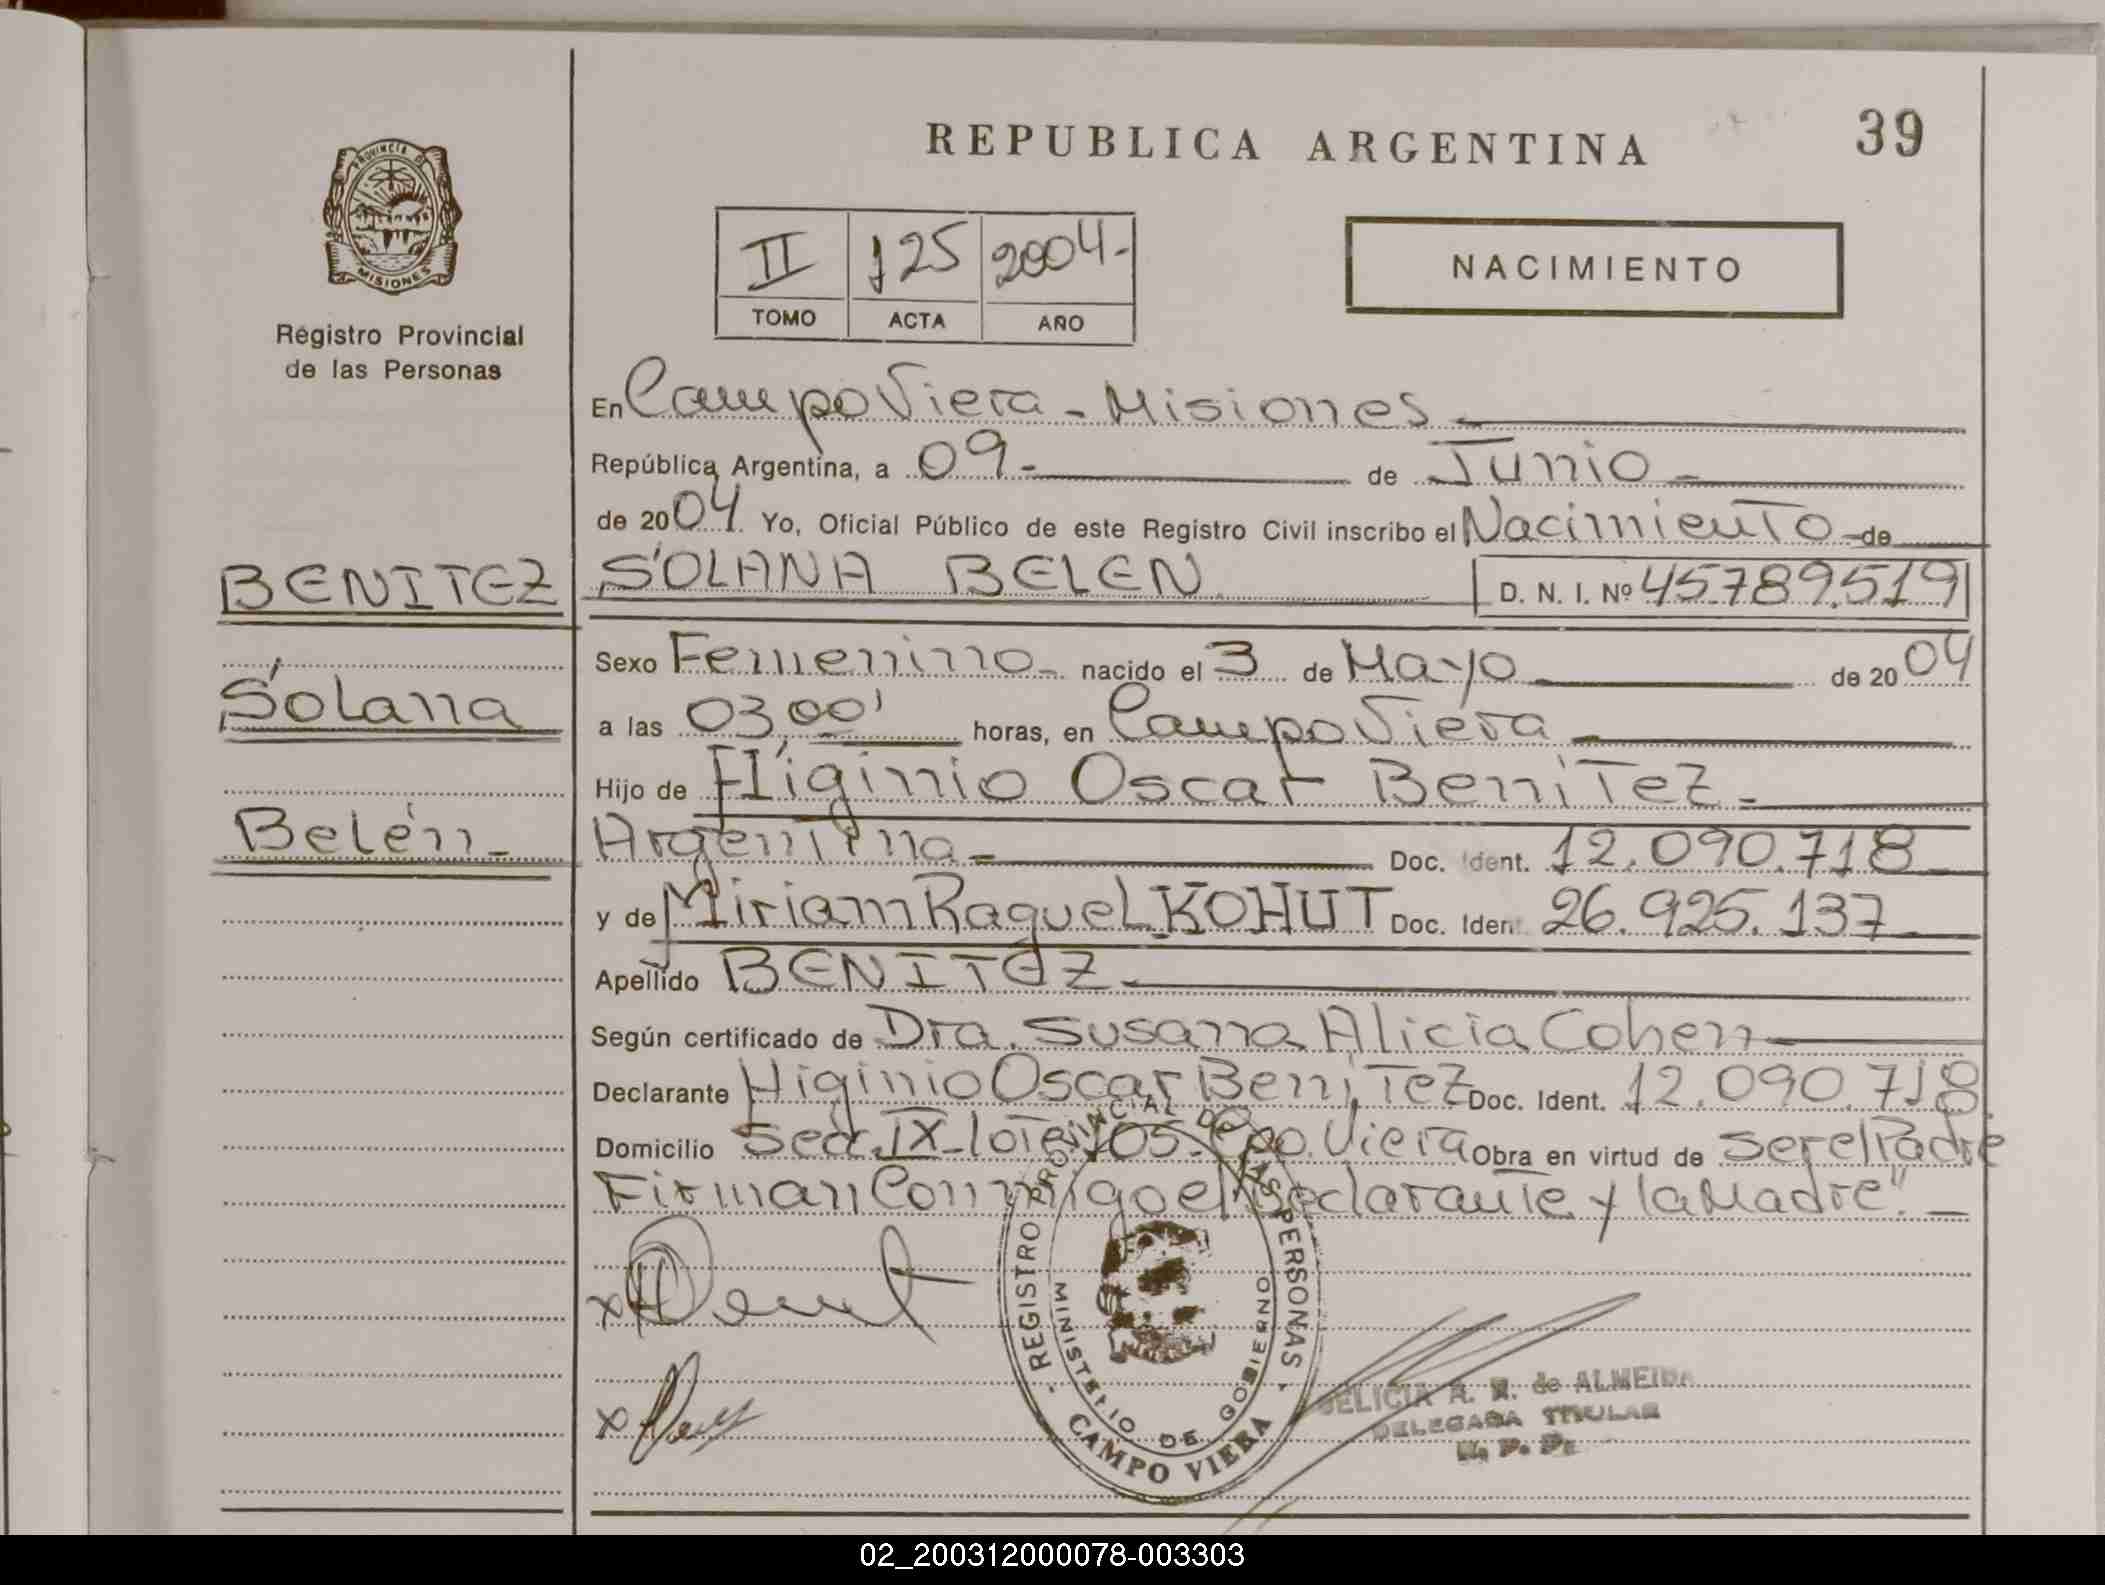 REPUBLICA ARGENTINA
39
PROVINCIA DE
MISIONES
Registro Provincial
de las Personas
II 125 2004-
TOMO ACTA AÑO
NACIMIENTO
En Campo Viera - Misiones
República Argentina, a 09- de Junio -
de 2004. Yo, Oficial Público de este Registro Civil inscribo el Nacimiento de
BENITEZ
SOLANA BELEN
D. N. I. Nº 45.789.519
Sexo Femenino - nacido el 3 de Mayo de 2004
Solana
a las 03,00' horas, en Campo Viera
Hijo de Higinio Oscar Benitez -
Belén -
Argentina - Doc. Ident. 12.090.718
y de Miriam Raquel KOHUT Doc. Ident 26.925.137
Apellido BENITEZ -
Según certificado de Dra. Susana Alicia Cohen
Declarante Higinio Oscar Benitez Doc. Ident. 12.090.718
Domicilio Secc. IX - lote 105 - Cpo. Viera Obra en virtud de ser el Padre
Firman Conmigo el Declarante y la Madre". -
REGISTRO PROVINCIAL DE LAS PERSONAS
MINISTERIO DE GOBIERNO
CAMPO VIERA
de ALMEIDA
DELEGADA TITULAR
R. P. P.
02_200312000078-003303